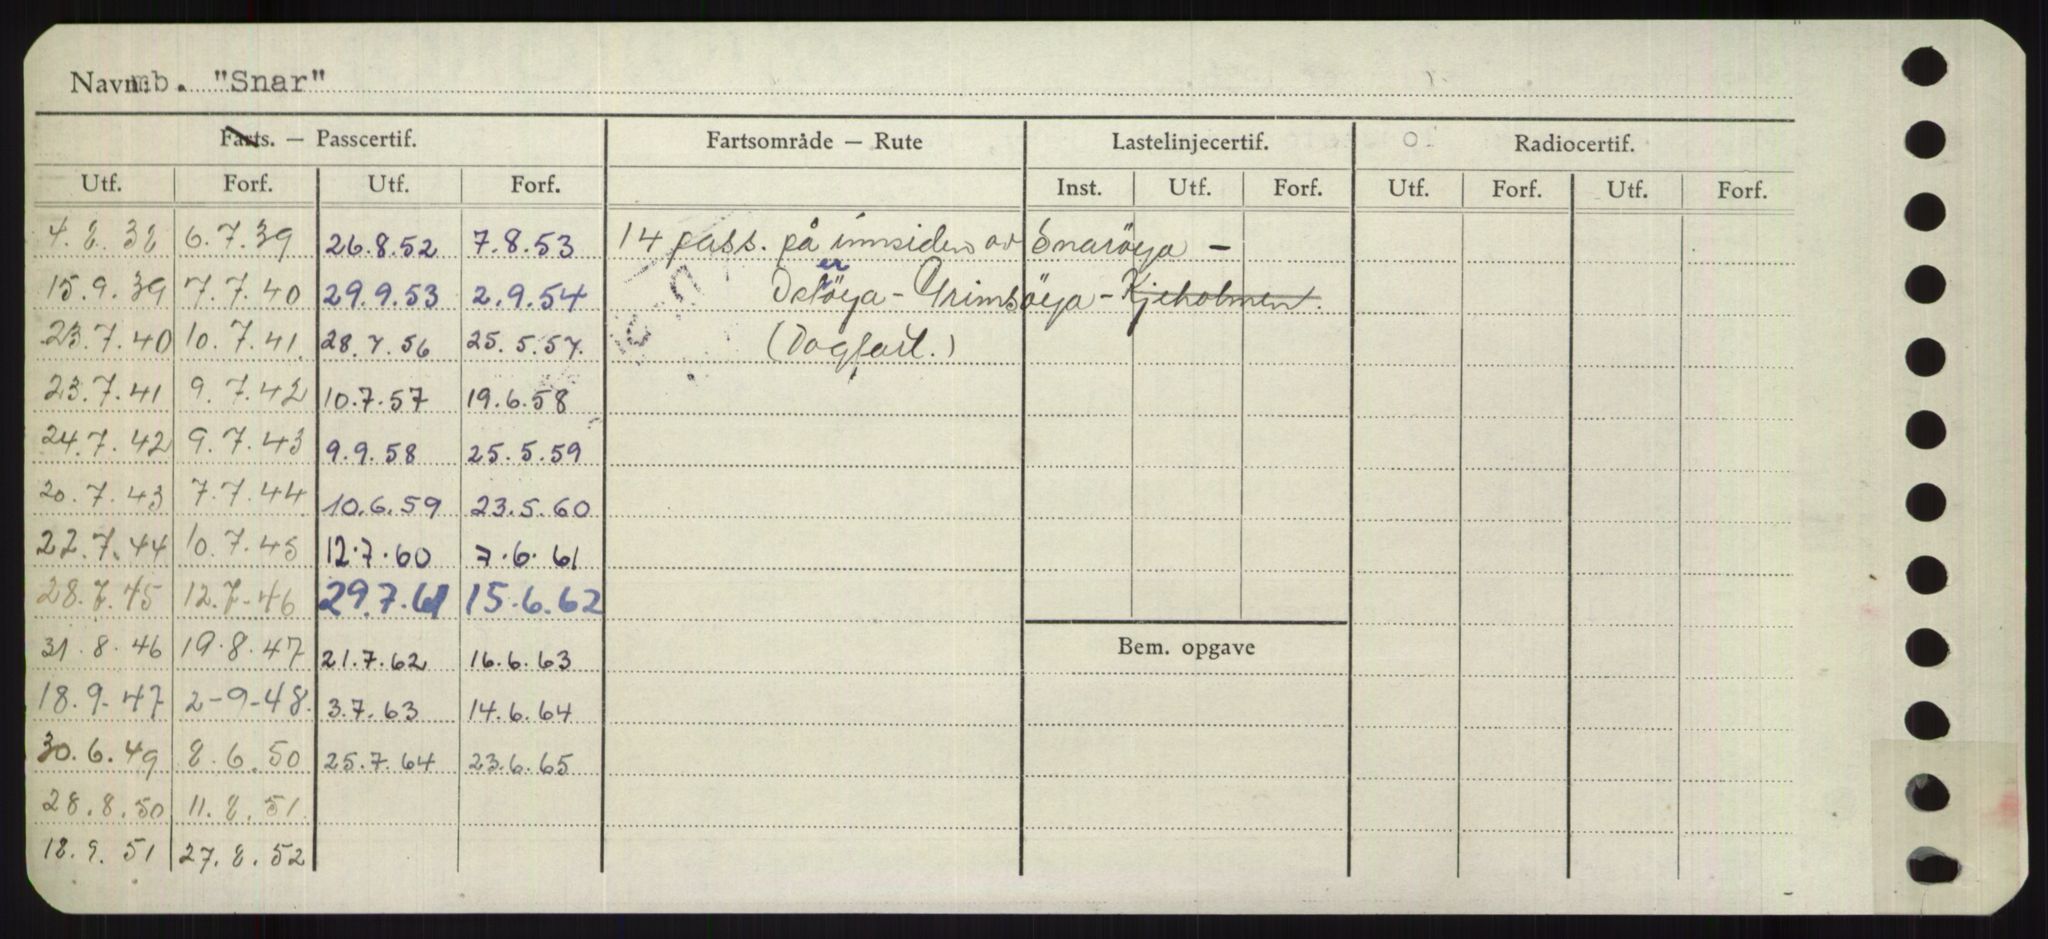 Navn: mb. "Snar"
Farts. — Passcertif. Fartsområde — Rute Lastelinjecertif. Radiocertif.
Utf. Forf. Utf. Forf. Inst. Utf. Forf. Utf. Forf. Utf. Forf.
4.8.38 6.7.39 26.8.52 7.8.53 14 pass. på innsiden av Snaröya —
15.9.39 7.7.40 29.9.53 2.9.54 Grimsöya - Kjeholmen.
23.7.40 10.7.41 28.7.56 25.5.57. (Dagfart.)
23.7.41 9.7.42 10.7.57 19.6.58
24.7.42 9.7.43 9.9.58 25.5.59
20.7.43 7.7.44 10.6.59 23.5.60
22.7.44 10.7.45 12.7.60 7.6.61
28.7.45 12.7-46 29.7.61 15.6.62
31.8.46 19.8.47 21.7.62 16.6.63
Bem. opgave
18.9.47 2-9-48. 3.7.63 14.6.64
30.6.49 8.6.50 25.7.64 23.6.65
28.8.50 11.8.51
18.9.51 27.8.52